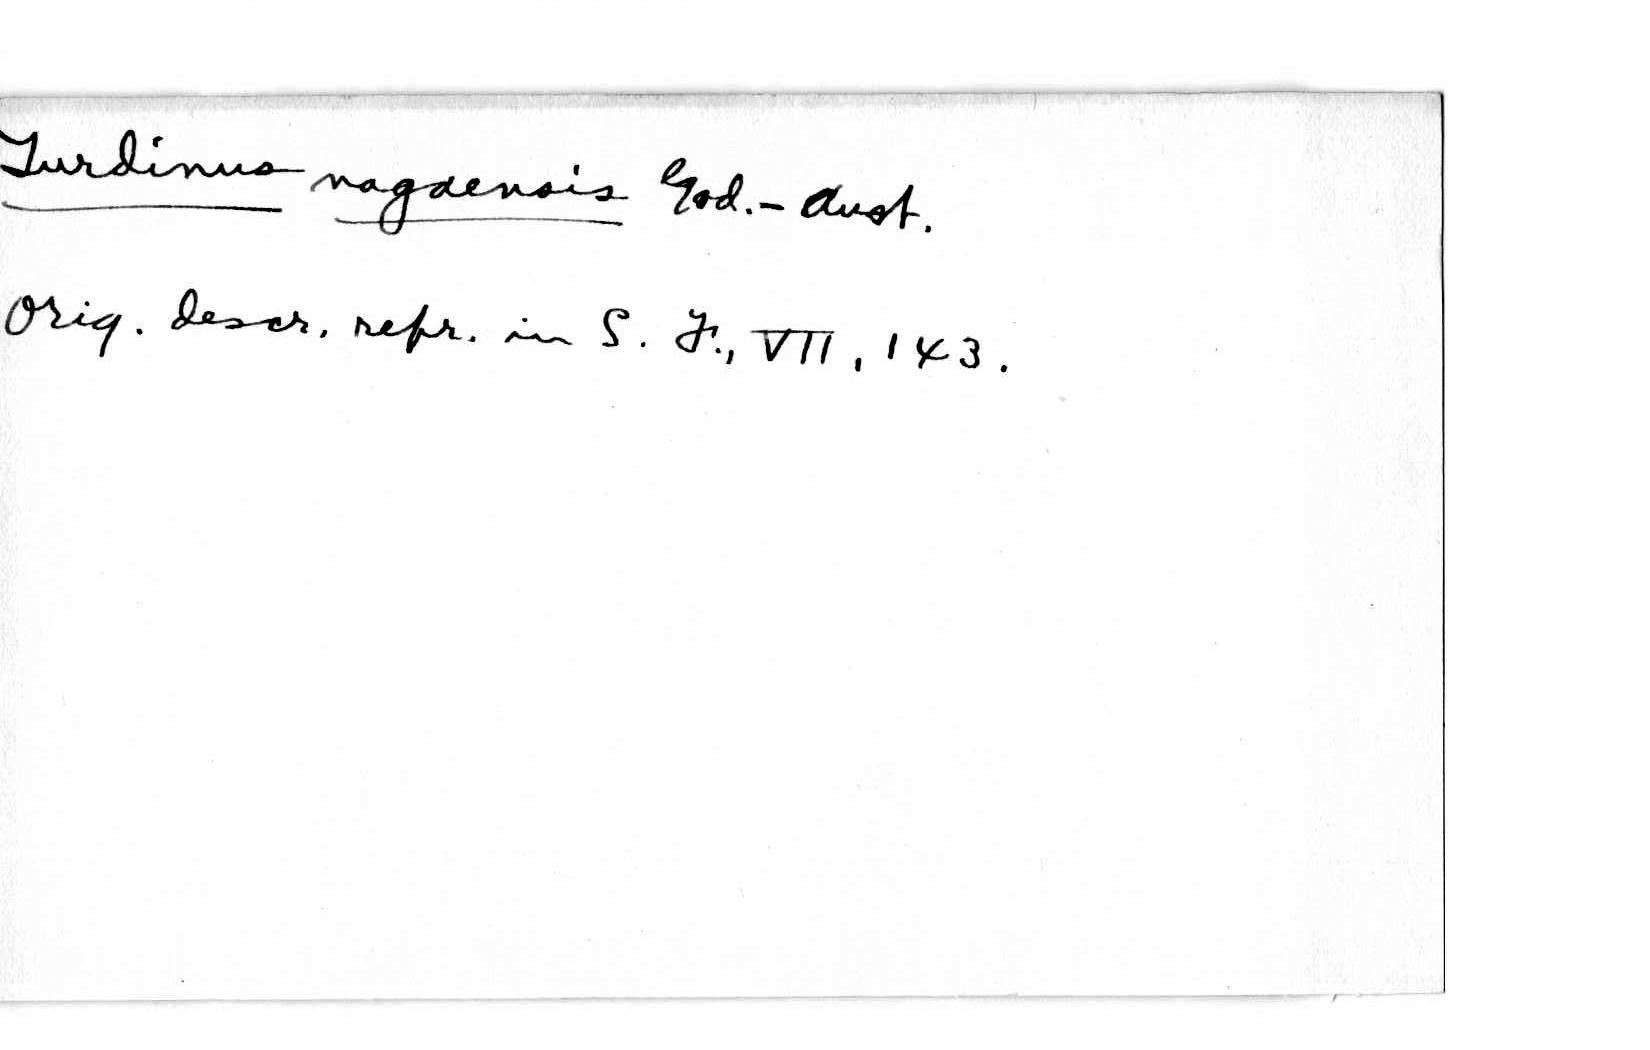 Turdinus nagaensis God.-Aust.
Orig. descr. repr. in S. F., VII, 143.